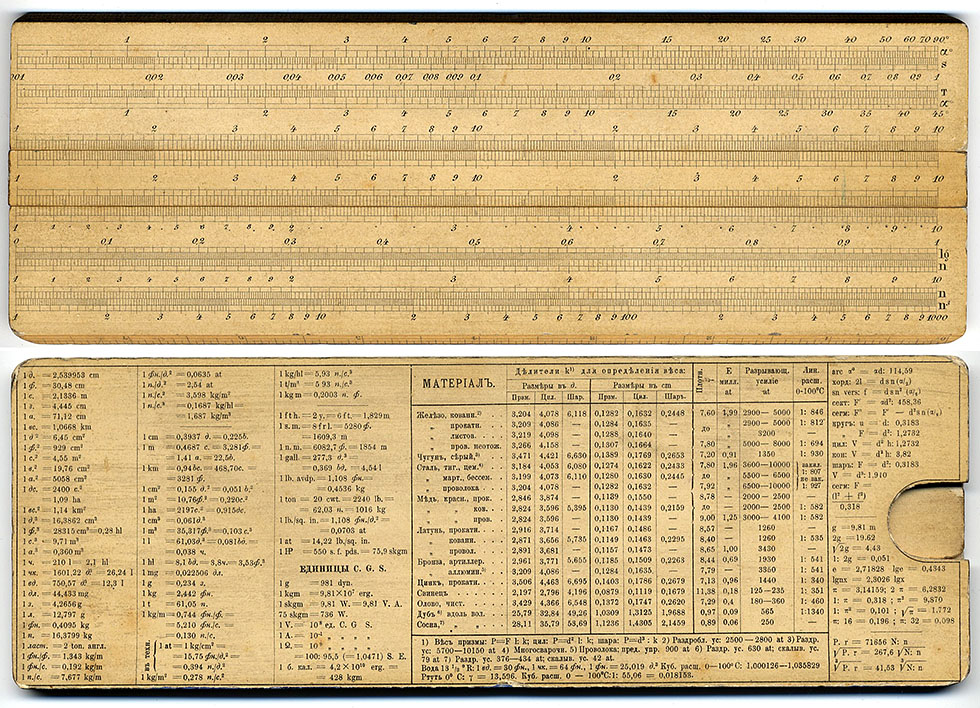 1 2 3 4 5 6 7 8 9 10 15 20 25 30 40 50 60 70 90°
α°
s
0,01 0,02 0,03 0,04 0,05 0,06 0,07 0,08 0,09 0,1 0,2 0,3 0,4 0,5 0,6 0,7 0,8 0,9 1
T
α
1 2 3 4 5 6 7 8 9 10 15 20 25 30 35 40 45°
1 2 3 4 5 6 7 8 9 10 2 3 4 5 6 7 8 9 10
1 2 3 4 5 6 7 8 9 10 2 3 4 5 6 7 8 9 10
1 1 2 3 4 5 6 7 8 9 2 3 4 5 6 7 8 9 10
0 0,1 0,2 0,3 0,4 0,5 0,6 0,7 0,8 0,9 1
lg
n
1 1 2 3 4 5 6 7 8 9 2 3 4 5 6 7 8 9 10
n
n³
1 2 3 4 5 6 7 8 9 10 2 3 4 5 6 7 8 9 100 2 3 4 5 6 7 8 9 1000
1 д. = 2,539953 cm
1 ф. = 30,48 cm
1 с. = 2,1336 m
1 л. = 4,445 cm
1 п. = 71,12 cm
1 вс. = 1,0668 km
1 д² = 6,45 cm²
1 ф.² = 929 cm²
1 с.² = 4,55 m²
1 в.² = 19,76 cm²
1 а.² = 5058 cm²
1 дс. = 2400 с.²
1,09 ha
1 вс.² = 1,14 km²
1 д.³ = 16,3862 cm³
1 ф.³ = 28315 cm³ = 0,28 hl
1 с.³ = 9,71 m³
1 а.³ = 0,360 m³
1 ч. = 210 l = 2,1 hl
1 чк. = 1601,22 д.³ = 26,24 l
1 вд. = 750,57 д.³ = 12,3 l
1 дл. = 44,433 mg
1 з. = 4,2656 g
1 л. = 12,797 g
1 фн. = 0,4095 kg
1 п. = 16,3799 kg
1 ласт. = 2 тон. англ.
1 фн./ф. = 1,343 kg/m
1 фн./с. = 0,192 kg/m
1 п./с. = 7,677 kg/m
1 фн./д.² = 0,0635 at
1 п./д.² = 2,54 at
1 п./с.² = 3,598 kg/m²
1 п./с.³ = 0,1687 kg/hl =
1,687 kg/m³
1 cm = 0,3937 д. = 0,225в.
1 m = 0,4687 с. = 3,281ф.
1,41 а. = 22,5в.
1 km = 0,94вс. = 468,70с.
3281 ф.
1 cm² = 0,155 д.² = 0,051 в.²
1 m² = 10,76ф.² = 0,220с.²
1 ha = 2197с.² = 0,915дс.
1 cm³ = 0,061д.³
1 m³ = 35,317ф.³ = 0,103 с.³
1 l = 61,03д.³ = 0,081вд. =
0,038 ч.
1 hl = 8,1вд. = 3,8ч. = 3,53ф.³
1 mg = 0,022506 дл.
1 g = 0,234 з.
1 kg = 2,442 фн.
1 t = 61,05 п.
1 kg/m = 0,744 фн./ф.
5,210 фн./с.
0,130 п./с.
1 at = 1 kg/cm² =
= 15,75 фн./д.²
= 0,394 п./д.²
1 kg/m² = 0,278 п./с.²
1 kg/hl = 5,93 п./с.³
1 t/m³ = 593 п./с.³
1 kgm = 0,2003 п. ф.
1 fth. = 2 y. = 6 ft. = 1,829 m
1 s.m. = 8 frl. = 5280 ф.
= 1609,3 m
1 n.m. = 6082,7 ф. = 1854 m
1 gall. = 277,3 д.³
= 0,369 вд. = 4,54 l
1 lb. avdp. = 1,108 фн. =
= 0,4536 kg
1 ton = 20 cwt = 2240 lb. =
= 62,03 п. = 1016 kg
1 lb./sq. in. = 1,108 фн./д.² =
= 0,0703 at
1 at = 14,22 lb./sq. in.
1 HP = 550 s. f. pds. = 75,9 skgm
ЕДИНИЦЫ C. G. S.
1 g = 981 dyn.
1 kgm = 9,81×10⁷ erg.
1 skgm = 9,81 W. = 9,81 V. A.
75 skgm = 736 W.
1 V. = 10⁸ ед. C. G. S.
1 A. = 10⁻¹ „ „ „
1 Ω. = 10⁹ „ „ „
100: 95,5 (= 1,0471) S. E.
1 б. кал. = 4,2×10¹⁰ erg. =
= 428 kgm
МАТЕРІАЛЪ.
Дѣлители k¹) для опредѣленія вѣса:
Размѣры въ д. Размѣры въ cm
Прзм. Цил. Шар. Прзм. Цил. Шаръ.
Плотн. Е милл. at Разрывающ. усиліе at Лин. расш. 0-100°C
Желѣзо, кованн.²) 3,204 4,078 6,118 0,1282 0,1632 0,2448 7,60 1,99 2900— 5000 1: 846
„ прокатн. 3,209 4,086 — 0,1284 0,1635 — до „ 2900— 5000 1: 812
„ листов. 3,219 4,098 — 0,1288 0,1640 — „ 3200 —
„ пров. неотож. 3,266 4,158 — 0,1307 0,1664 — 7,80 „ 5000— 8000 1: 694
Чугунъ, сѣрый,³) 3,471 4,421 6,630 0,1389 0,1769 0,2653 7,20 0,91 1350 1: 930
Сталь, тиг., цем.⁴) 3,184 4,053 6,080 0,1274 0,1622 0,2433 7,80 1,96 3600—10000 закал. 1: 807
„ март., бессем. 3,199 4,073 6,110 0,1280 0,1630 0,2445 до „ 5500— 6500 не зак.
„ проволока 3,204 4,078 — 0,1282 0,1632 — 7,92 „ 6500—10000 1: 927
Мѣдь, красн., прок. 2,846 3,874 — 0,1139 0,1550 — 8,78 — 2000— 2500 —
„ „ ков. 2,824 3,596 5,395 0,1130 0,1439 0,2159 до — 2000— 2500 1: 582
„ „ пров. 2,824 3,596 — 0,1130 0,1439 — 9,00 1,25 3000— 4100 1: 582
Латунь, прокатн. 2,916 3,714 — 0,1167 0,1486 — 8,57 — 1260 —
„ кованн. 2,871 3,656 5,735 0,1149 0,1463 0,2295 8,40 — 1260 1: 535
„ провол. 2,891 3,681 — 0,1157 0,1473 — 8,65 1,00 3430 —
Бронза, артиллер. 2,961 3,771 5,655 0,1185 0,1509 0,2263 8,44 0,69 1930 1: 541
„ аллюмин.⁵) 3,209 4,086 — 0,1284 0,1635 — 7,79 — 3350 1: 541
Цинкъ, прокатн. 3,506 4,463 6,695 0,1403 0,1786 0,2679 7,13 0,96 1440 1: 340
Свинецъ 2,197 2,796 4,196 0,0879 0,1119 0,1679 11,38 0,18 125—235 1: 351
Олово, чист. 3,429 4,366 6,548 0,1372 0,1747 0,2620 7,29 0,4 180—360 1: 460
Дубъ⁶) вдоль вол. 25,79 32,84 49,26 1,0309 1,3125 1,9688 0,97 0,09 565 1:1340
Сосна,⁷) „ „ 28,11 35,79 53,69 1,1236 1,4305 2,1459 0,89 0,06 250 —
1) Вѣсъ призмы: P=F l: k; цил: P=d² l: k; шара: P=d³ : k 2) Раздробл. ус: 2500—2800 at 3) Раздр.
ус: 5700—10150 at 4) Многосварочн. 5) Проволока; пред. упр. 900 at 6) Раздр. ус: 630 at; скалыв. ус.
79 at 7) Раздр. ус: 376—434 at; скалыв. ус. 42 at.
Вода 13 ¹/₃ °R: 1 вд. = 30 фн., 1 чк. = 64 фн., 1 фн. = 25,019 д.³ Куб. расш. 0—100°C: 1,000126—1,035829
Ртуть 0° C: γ = 13,596. Куб. расш. 0 — 100°C:1: 55,06 = 0,018153.
arc α° = αd: 114,59
хорд: 2l = d sn (α/₂)
sn vers: f = d sn² (α/₄)
сект: F = αd²: 458,36
сегм: F'' = F' — d² sn (α/₂)
кругъ: u = d: 0,3183
„ F = d²: 1,2732
цил: V = d² h: 1,2732
кон: V = d² h: 3,82
шаръ: F = d²: 0,3183
V = d³: 1,910
сегм: F =
(l² + f²)
0,318
g = 9,81 m
2g = 19,62
√2g = 4,43
1: 2g = 0,051
e = 2,71828 lge = 0,4343
lgnx = 2,3026 lgx
π = 3,14159; π² = 9,870
1: π = 0,318 ; √π = 1,772
π: 16 = 0,196 ; π: 32 = 0,098
P. r = 71656 N: n